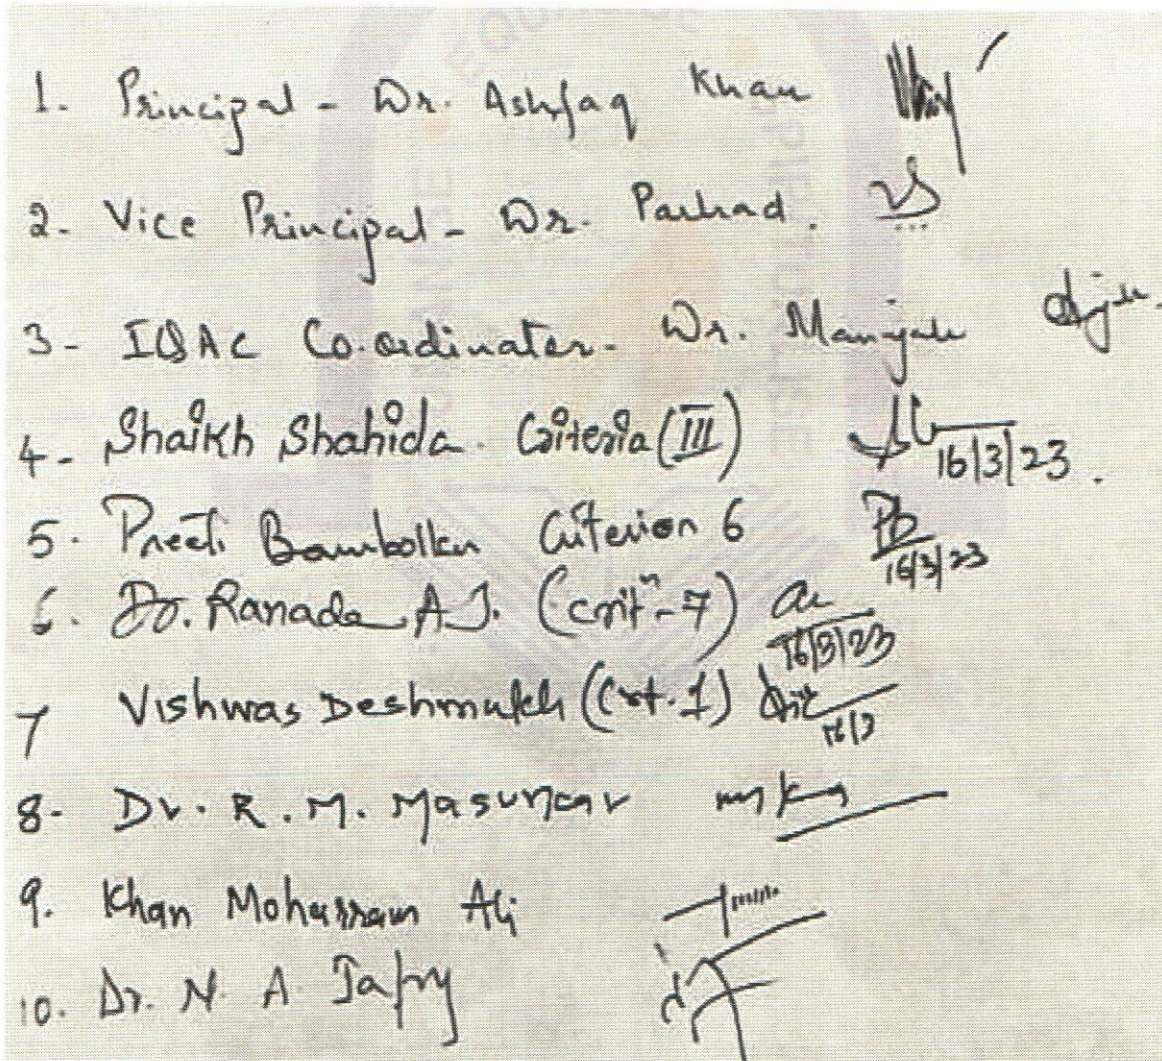 1. Principal - Dr. Ashfaq Khan
2. Vice Principal - Dr. Parhad.
3 - IQAC Co-ordinator - Dr. Manjale
4 - Shaikh Shahida. Criteria (III) 16/3/23.
5. Preeti Criterion 6 16/3/23
6. Dr. Ranade A.J. (critⁿ-7) 16/3/23
7 Vishwas Deshmukh (Crt. 1) 16/3
8 - Dr. R. M.
9. Khan Moharram Ali
10. Dr. N. A. Jafry